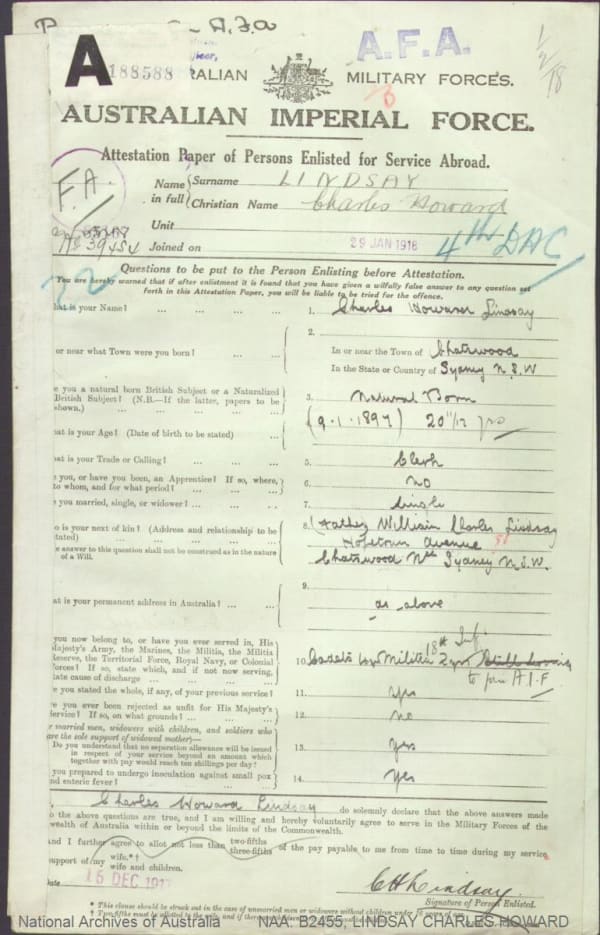 A.F.A.
A.F.A.
1/2/18
A 188588 RALIAN MILITARY FORCES.
AUSTRALIAN IMPERIAL FORCE.
Attestation Paper of Persons Enlisted for Service Abroad.
F.A.
Name in full Surname LINDSAY
Christian Name Charles Howard
Unit
39454
Joined on 29 JAN 1918
4th DAC
Questions to be put to the Person Enlisting before Attestation.
You are hereby warned that if after enlistment it is found that you have given a wilfully false answer to any question set
forth in this Attestation Paper, you will be liable to be tried for the offence.
hat is your Name? ... ... ... ... 1. Charles Howard Lindsay
2.
or near what Town were you born? ... In or near the Town of Chatswood
In the State or Country of Sydney N.S.W
e you a natural born British Subject or a Naturalized
British Subject? (N.B.—If the latter, papers to be
shown.) ... ... ... ... 3. Natural Born
hat is your Age? (Date of birth to be stated) ... (9.1.1897) 20 11/12 yrs
hat is your Trade or Calling? ... ... ... 5. Clerk
e you, or have you been, an Apprentice? If so, where,
to whom, and for what period? ... ... ... 6. no
e you married, single, or widower? ... ... 7. Single
o is your next of kin? (Address and relationship to be
tated) ... ... ... ... 8. (Father) William Charles Lindsay
Hopetown Avenue
e answer to this question shall not be construed as in the nature
of a Will. Chatswood Nth Sydney N.S.W.
9.
at is your permanent address in Australia? ... ... as above
you now belong to, or have you ever served in, His
Majesty's Army, the Marines, the Militia, the Militia
Reserve, the Territorial Force, Royal Navy, or Colonial
Forces? If so, state which, and if not now serving,
tate cause of discharge ... ... ... 10. Cadets Militia 18th Inf
to join A.I.F
e you stated the whole, if any, of your previous service? 11. yes
e you ever been rejected as unfit for His Majesty's
Service? If so, on what grounds? ... ... 12. no
r married men, widowers with children, and soldiers who
are the sole support of widowed mother)—
Do you understand that no separation allowance will be issued
in respect of your service beyond an amount which
together with pay would reach ten shillings per day? 13. Yes
you prepared to undergo inoculation against small pox
nd enteric fever? ... ... ... ... 14. Yes
, Charles Howard Lindsay do solemnly declare that the above answers made
o the above questions are true, and I am willing and hereby voluntarily agree to serve in the Military Forces of the
wealth of Australia within or beyond the limits of the Commonwealth.
And I further agree to allot not less than two-fifths three-fifths of the pay payable to me from time to time during my service
support of my wife.*† wife and children.
Date 15 DEC 1917
C H Lindsay
Signature of Person Enlisted.
* This clause should be struck out in the case of unmarried men or widowers without children under
National Archives of Australia NAA: B2455, LINDSAY CHARLES HOWARD